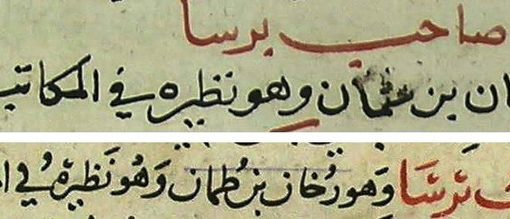 صاحب برسا
ان بن عثمان وهو نظيره في المكاتبـ
برسا وهو رخان بن طمان وهو نظيره في